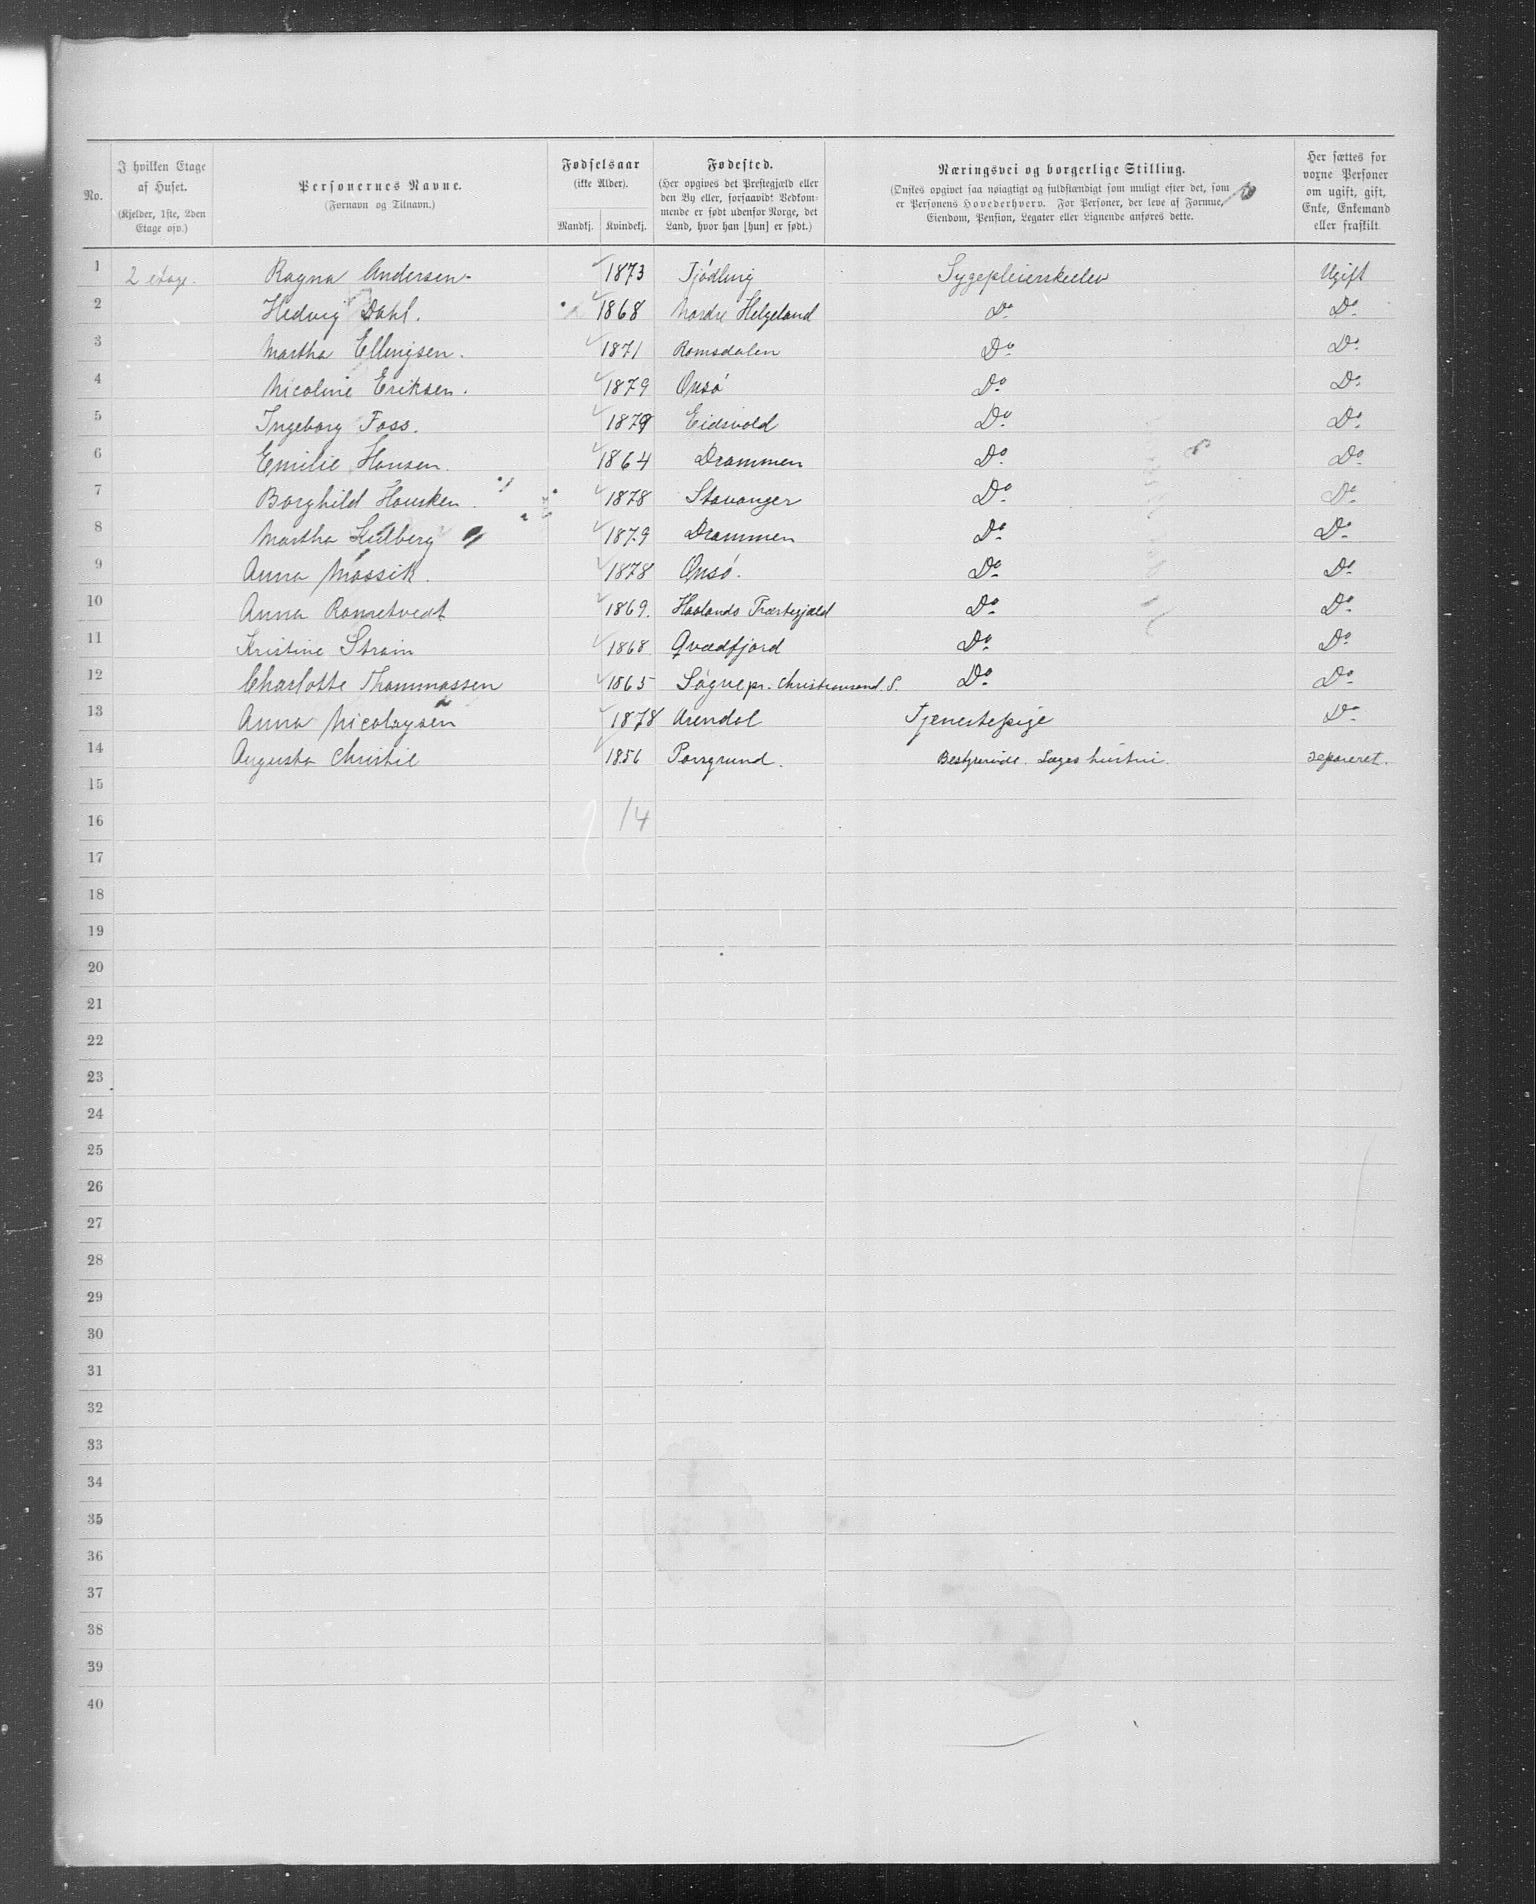 No.
I hvilken Etage af Huset. (Kjelder, 1ste, 2den Etage osv.)
Personernes Navne. (Fornavn og Tilnavn.)
Fødselsaar (ikke Alder). Mandkj. Kvindekj.
Fødested. (Her opgives det Prestegjæld eller den By eller, forsaavidt Vedkommende er født udenfor Norge, det Land, hvor han [hun] er født.)
Næringsvei og borgerlige Stilling. (Ønskes opgivet saa nøiagtigt og fuldstændigt som muligt efter det, som er Personens Hovederhverv. For Personer, der leve af Formue, Eiendom, Pension, Legater eller Lignende anføres dette.)
Her sættes for voxne Personer om ugift, gift, Enke, Enkemand eller fraskilt
1 2 etage. Ragna Andersen 1873 Tjødling Sygepleierskeelev Ugift
2 Hedvig Dahl. 1868 Nordre Helgeland Do Do
3 Martha Ellingsen. 1871 Romsdalen Do Do
4 Nicoline Eriksen. 1879 Onsø Do Do
5 Ingeborg Foss. 1879 Eidsvold Do Do
6 Emilie Hansen. 1864 Drammen Do Do
7 Borghild Hausken. 1878 Stavanger Do Do
8 Martha 1879 Drammen Do Do
9 Anna Mossik. 1878 Onsø. Do Do
10 Anna 1869. Do Do
11 Kristine Strøm 1868 Qvædfjord Do Do
12 Charlotte Thommassen 1865 Søgne pr. Christiansand. S. Do Do
13 Anna Nicolaysen 1878 Arendal Tjenestepige Do
14 Augusta Christie 1856 Porsgrund. Bestyrerinde. Læges hustru. separeret.
15
16 14
17
18
19
20
21
22
23
24
25
26
27
28
29
30
31
32
33
34
35
36
37
38
39
40